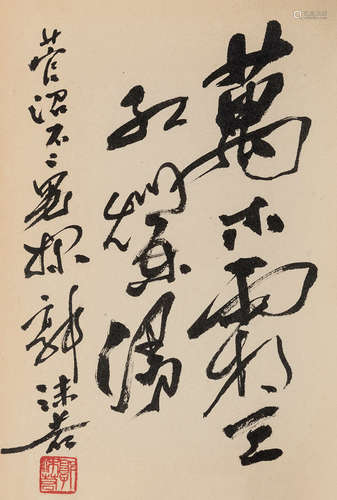 萬木霜天
紅爛漫
菅沼不二男様 郭沫若
郭沫若